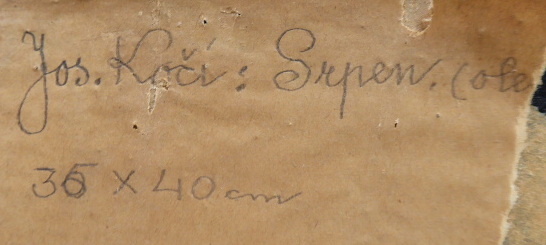 Jos. Kočí: Srpen. (ole
36 x 40 cm